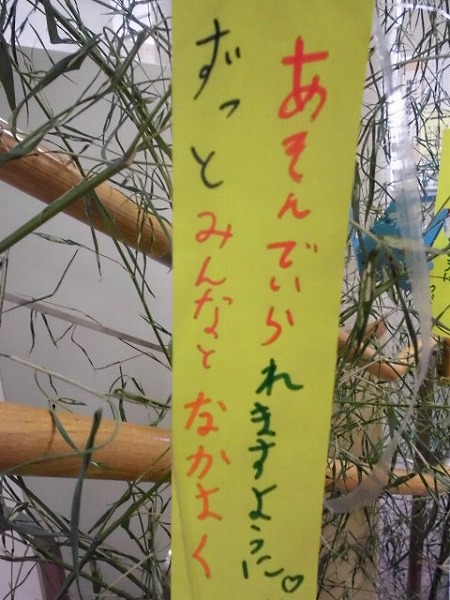 ずっとみんなとなかよく
あそんでいられますように♡